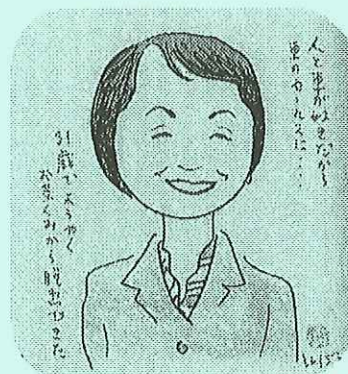 人と車が好きだから
車のセールスに…
31歳でようやく
お茶くみから脱出できた